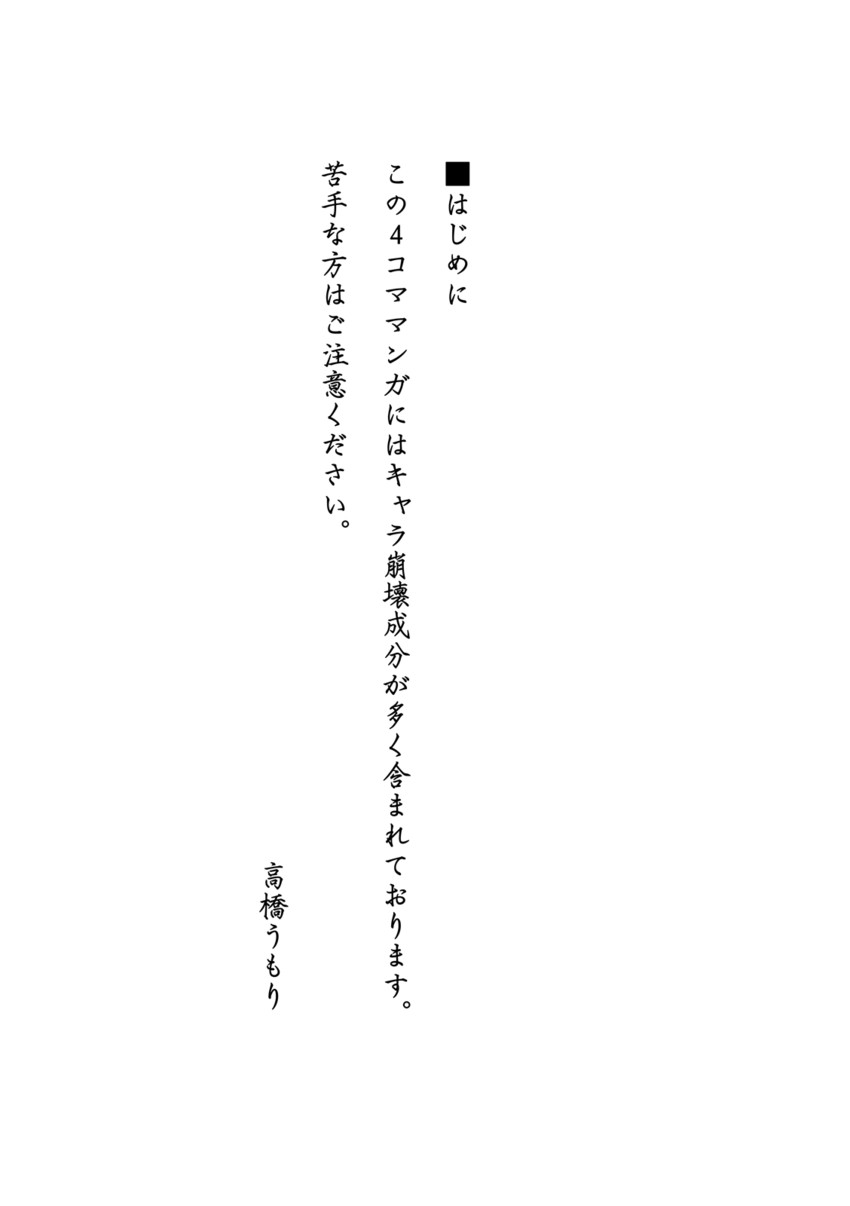 ■はじめに
この4コママンガにはキャラ崩壊成分が多く含まれております。
苦手な方はご注意ください。
高橋うもり